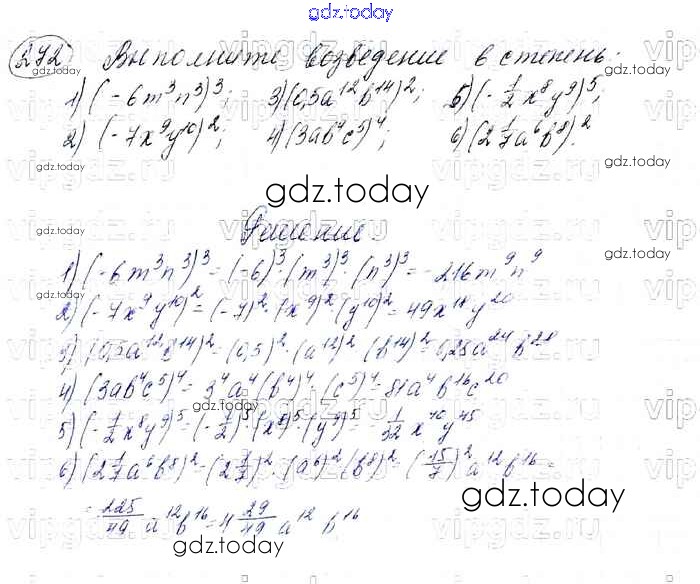 gdz.today
292 Выполните возведение в степень:
1) (-6m³n³)³; 3) (0,5a¹²b¹⁴)²; 5) (-1/2 x⁸y⁹)⁵;
2) (-7x⁹y¹⁰)²; 4) (3ab⁴c⁵)⁴; 6) (2 1/7 a⁶b⁸)².
gdz.today
Решение.
1) (-6m³n³)³ = (-6)³·(m³)³·(n³)³ = -216m⁹n⁹
2) (-7x⁹y¹⁰)² = (-7)²·(x⁹)²·(y¹⁰)² = 49x¹⁸y²⁰
3) (0,5a¹²b¹⁴)² = (0,5)²·(a¹²)²·(b¹⁴)² = 0,25a²⁴b²⁸
4) (3ab⁴c⁵)⁴ = 3⁴a⁴(b⁴)⁴·(c⁵)⁴ = 81a⁴b¹⁶c²⁰
5) (-1/2 x⁸y⁹)⁵ = (-1/2)⁵·(x⁸)⁵·(y⁹)⁵ = -1/32 x⁴⁰y⁴⁵
6) (2 1/7 a⁶b⁸)² = (2 1/7)²·(a⁶)²(b⁸)² = (15/7)² a¹²b¹⁶ =
= 225/49 a¹²b¹⁶ = 4 29/49 a¹² b¹⁶
gdz.today
gdz.today